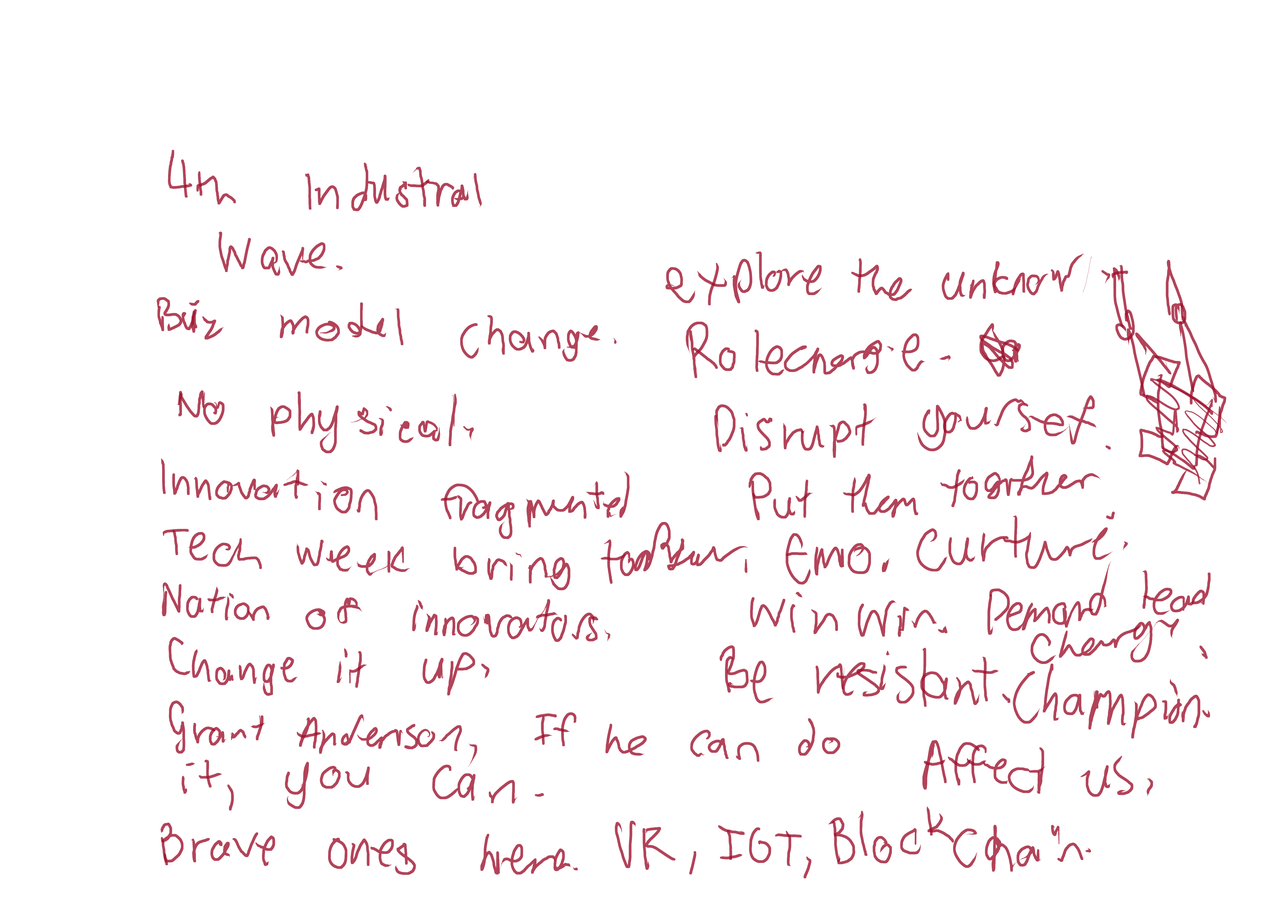 4th Industral
Wave.
Biz model change.
No physical.
Innovation fragmented
Tech week bring
Nation of innovators.
Change it up,
Grant Anderson, If he can do
it, you can.
Brave ones here. VR, IOT, Blockchain.
explore the unknow
Rolechange.
Disrupt yourself.
Put them together
Emo. Curture.
Win Win. Demand lead
change,
Be resistant. Champion.
Affect us,